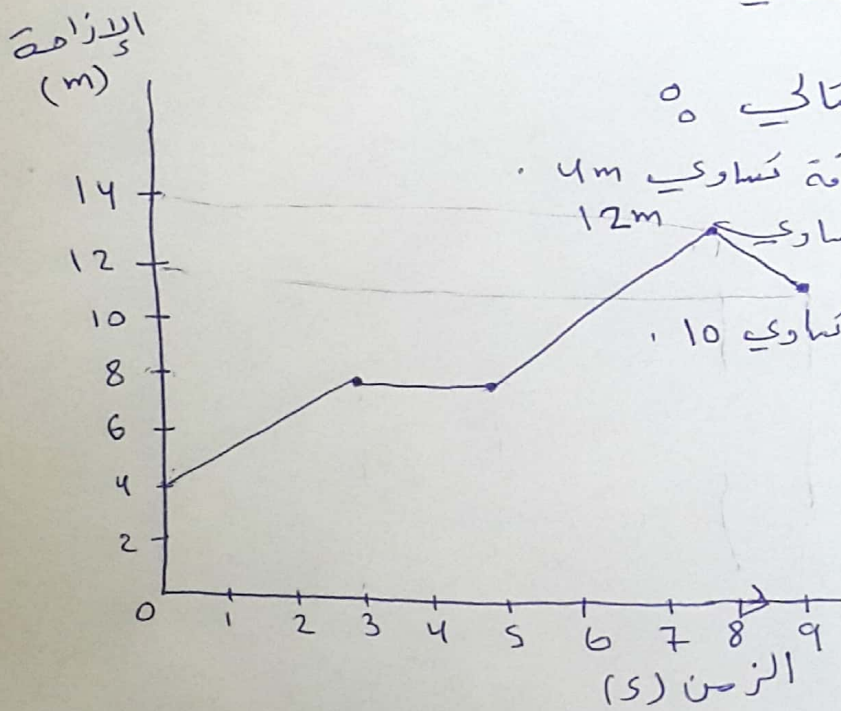 الإزاحة
(m)
تالي :
قة تساوي 4m .
ساوي 12m
تساوي 10 .
14
12
10
8
6
4
2
0 1 2 3 4 5 6 7 8 9
الزمن (s)